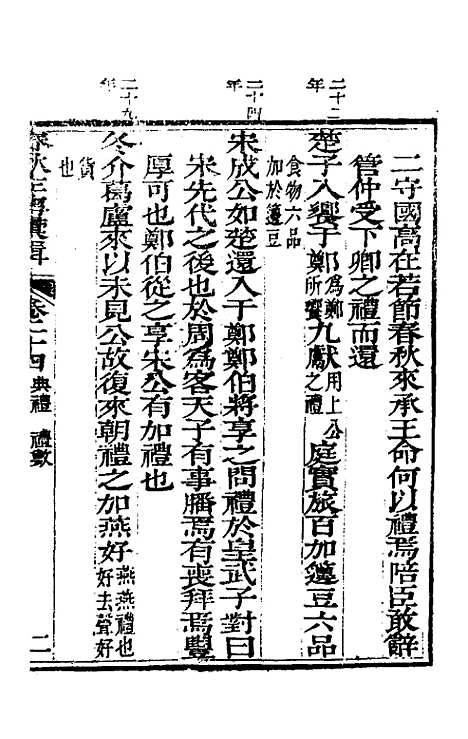 二守國高在若節春秋來承王命何以禮焉陪臣敢辭
管仲受下卿之禮而還
二十二年
楚子入饗于鄭為鄭所饗九獻用上公之禮庭實旅百加籩豆六品
食物六品加於籩豆
二十四年
宋成公如楚還入于鄭鄭伯將享之問禮於皇武子對曰
宋先代之後也於周為客天子有事膰焉有喪拜焉豐
厚可也鄭伯從之享宋公有加禮也
二十九年
冬介葛廬來以未見公故復來朝禮之加燕好燕燕禮也好去聲好
貨也
春秋左傳類輯 卷二十四 典禮 禮數 二